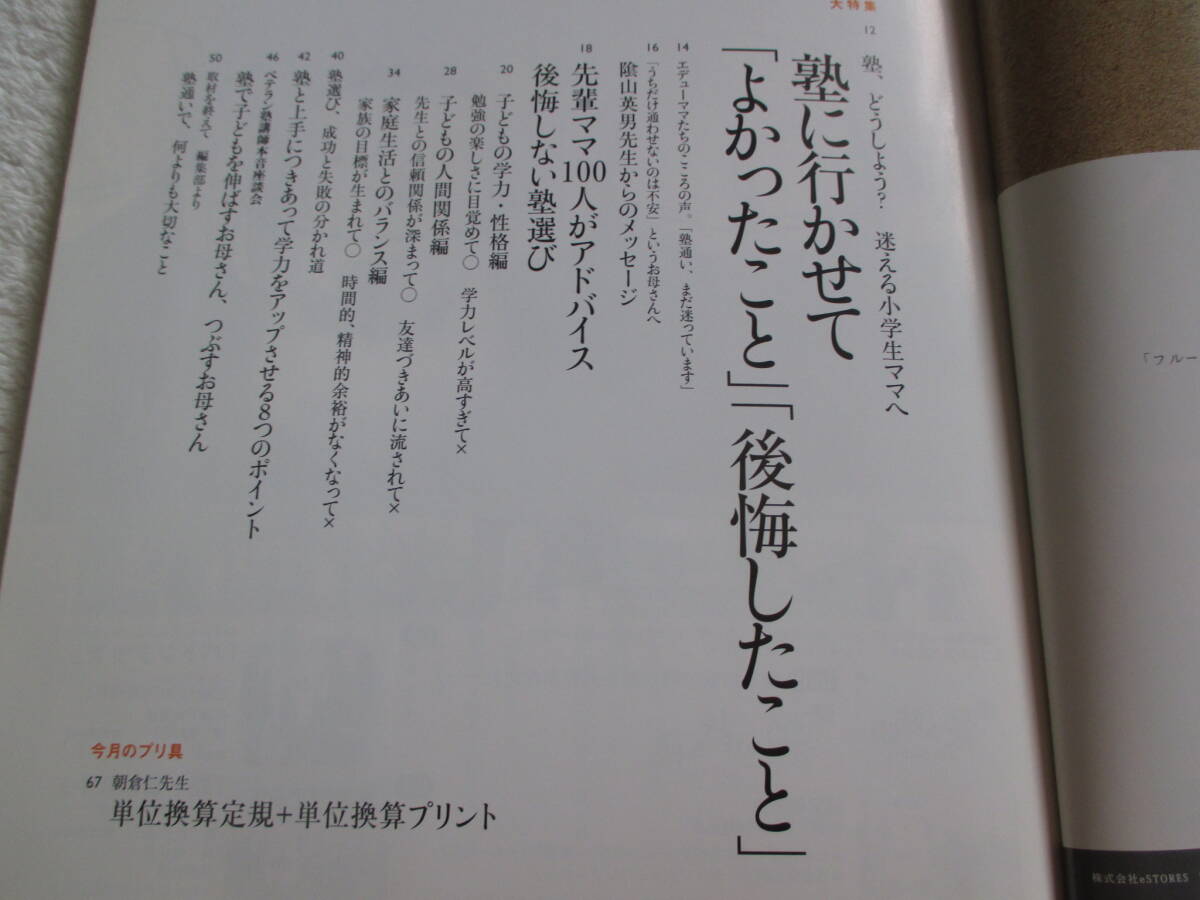 大特集
12
塾、どうしよう? 迷える小学生ママへ
塾に行かせて
「よかったこと」「後悔したこと」
14
エデューママたちのこころの声。「塾通い、まだ迷っています」
16
「うちだけ通わせないのは不安」というお母さんへ
陰山英男先生からのメッセージ
18
先輩ママ100人がアドバイス
後悔しない塾選び
20
子どもの学力・性格編
勉強の楽しさに目覚めて○ 学力レベルが高すぎて×
28
子どもの人間関係編
先生との信頼関係が深まって○ 友達づきあいに流されて×
34
家庭生活とのバランス編
家族の目標が生まれて○ 時間的、精神的余裕がなくなって×
40
塾選び、成功と失敗の分かれ道
42
塾と上手につきあって学力をアップさせる8つのポイント
46
ベテラン塾講師本音座談会
塾で子どもを伸ばすお母さん、つぶすお母さん
50
取材を終えて 編集部より
塾通いで、何よりも大切なこと
今月のプリ具
67 朝倉仁先生
単位換算定規+単位換算プリント
「フルー
株式会社eSTORES